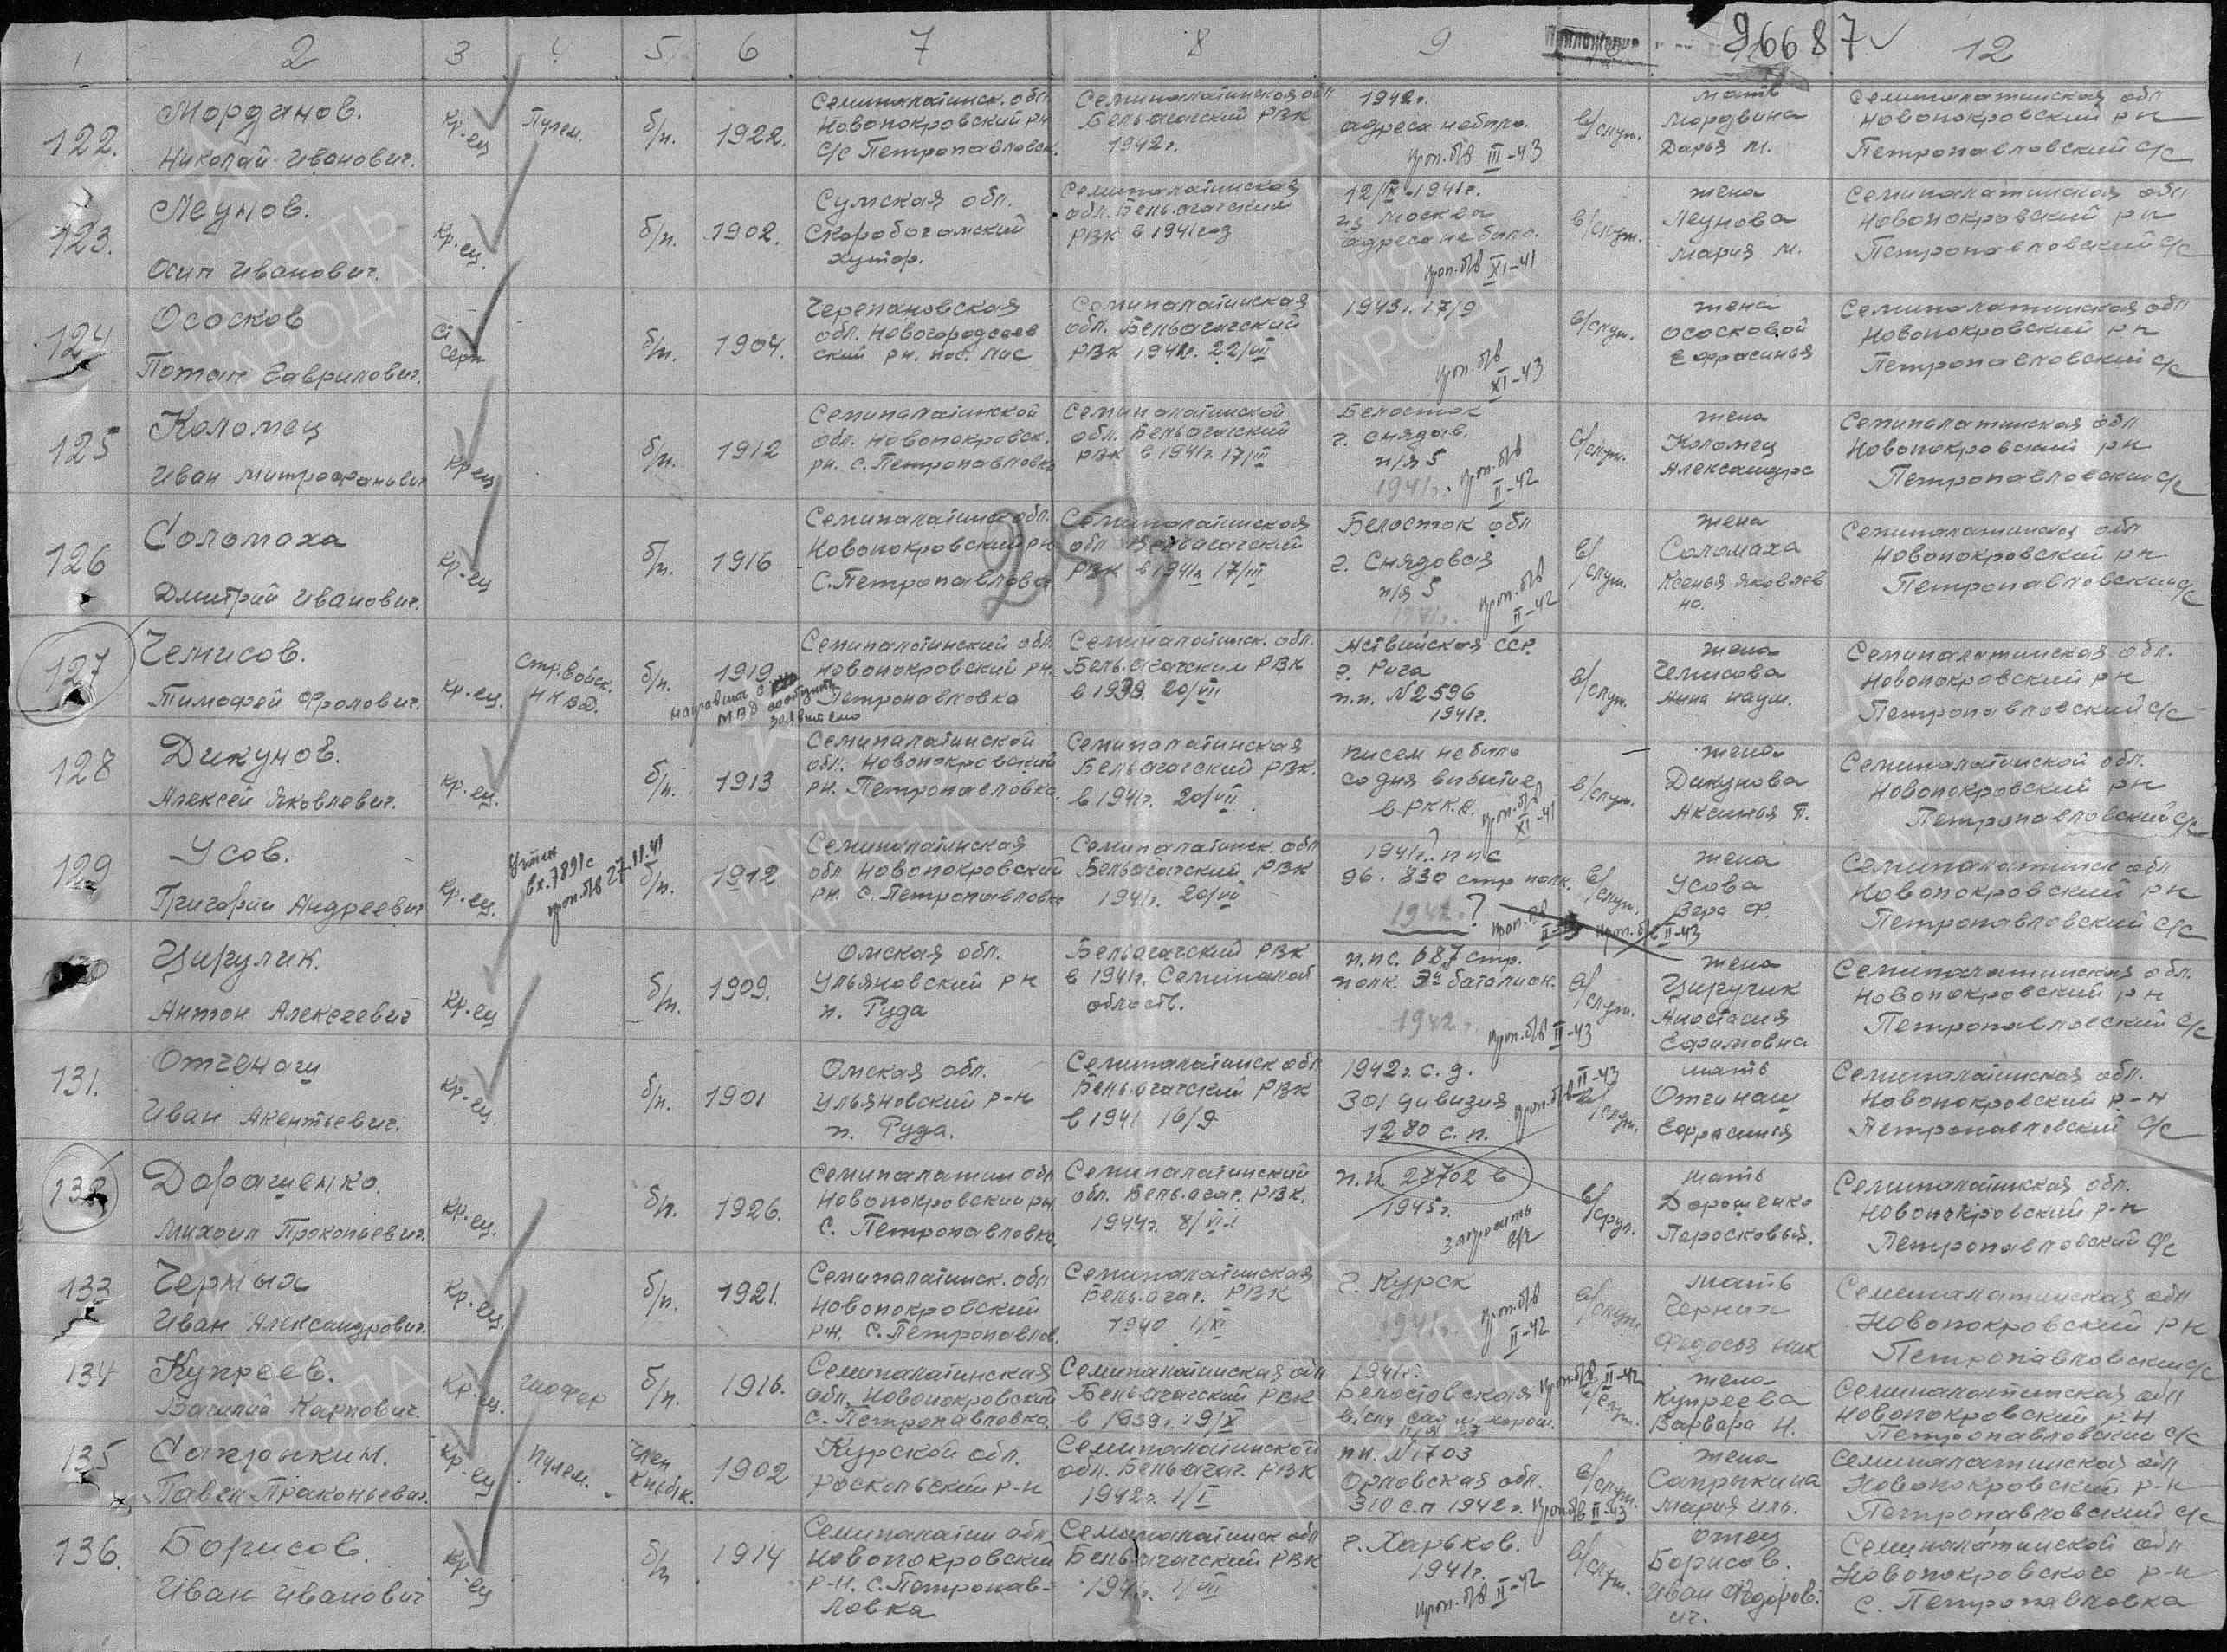 1 2 3 4 5 6 7 8 9 96687 12
122. Морданов. Николай Иванович. Кр-ец Пулем. б/п. 1922. Семипалатинск. обл. Новопокровский рн с/с Петропавловск. Семипалатинская обл Бельагачский РВК 1942г. 1942г. адреса небыло. проп. б/в III-43 в/служ. мать Мордвина Дарья М. Семипалатинская обл Новопокровский рн Петропавловский с/с
123. Леунов. Осип Иванович. Кр-ец. б/п. 1902. Сумская обл. Скоробогамский хутор. Семипалатинская обл. Бельагачский РВК в 1941год 12/IX-1941г. из Москва адреса небыло. проп. б/в XI-41 в/служ. жена Леунова Мария М. Семипалатинская обл Новопокровский рн Петропавловский с/с
124 Ососков Потап Гаврилович. Ст Серж б/п. 1904. Черепановская обл. рн. Семипалатинская обл. Бельагачский РВК 1941г. 22/VII 1943г. 17/9 проп. б/в XI-43 в/служ. жена Ососковой Ефросинья Семипалатинская обл Новопокровский рн Петропавловский с/с
125 Коломец Иван Митрофанович Кр-ец б/п. 1912 Семипалатинской обл. Новопокровск. рн. с. Петропавловка Семипалатинской обл. Бельагачский РВК в 1941г. 17/III Белосток г. Снядов. п/я 5 1941г. проп. б/в II-42 в/служ. жена Коломец Александра Семипалатинская обл Новопокровский рн Петропавловский с/с
126 Соломаха Дмитрий Иванович. Кр-ец б/п. 1916 Семипалатинск обл. Новопокровский рн С. Петропавловка Семипалатинская обл Бельагачский РВК в 1941г 17/III Белосток обл г. Снядовая п/я 5 1941г. проп. б/в II-42 в/служ. жена Соломаха Ксенья Яковлевна. Семипалатинская обл Новопокровский рн Петропавловский с/с
127 Чемисов. Тимофей Фролович. Кр.ец. Стр. войск. НКВД. б/п. 1919. Семипалатинский обл. Новопокровский рн. Петропавловка Семипалатинск. обл. Бельагачским РВК в 1939 20/VII г. Рига п.п. №2596 1941г. в/служ. жена Чемисова Анна Наум. Семипалатинская обл. Новопокровский рн Петропавловский с/с
128 Дикунов. Алексей Яковлевич. Кр.ец. б/п. 1913 Семипалатинской обл. Новопокровский рн. Петропавловка. Семипалатинская Бельагачский РВК. в 1941г. 20/VII писем небыло со дня выбытие в Р.К.К.А. проп. б/в XI-41 в/служ. жена Дикунова Аксинья П. Семипалатинской обл. Новопокровский рн Петропавловский с/с
129 Усов. Григории Андреевич Кр.ец. вх. 7891с проп. б/в 27.11.41 б/п. 1912 Семипалатинская обл Новопокровский рн. с. Петропавловка Семипалатинск. обл Бельагачский РВК 1941г. 20/VII 1941г. ппс 96. 830 стр полк. 1942г.? проп. б/в II-43 в/служ. жена Усова Вера Ф. Семипалатинск обл Новопокровский рн Петропавловский с/с
Цирулик. Антон Алексеевич Кр.ец б/п. 1909. Омская обл. Ульяновский рн п. Руда Бельагачский РВК в 1941г. Семипалат область. п.пс. 687 стр. полк. 3й батолион. 1942г. проп. б/в II-43 в/служ. жена Цирулик Анастасия Ефимовна Семипалатинская обл. Новопокровский рн Петропавловский с/с
131. Отченаш Иван Акентьевич. Кр.ец. б/п. 1901 Омская обл. Ульяновский р-н п. Руда. Семипалатинск обл Бельагачский РВК в 1941 16/9 1942г. с.д. 301 дивизия 1280 с.п. проп. б/в II-43 в/служ. мать Отчинаш Ефрасинья Семипалатинская обл. Новопокровский р-н Петропавловский с/с
132 Дорошенко. Михаил Прокопьевич. Кр.ец. б/п. 1926. Семипалатин обл Новопокровский рн. С. Петропавловка. Семипалатинский обл. Бельагач. РВК. 1944г. 8/VII п.п. 27702 в 1945г. запросить в/ч в/служ. мать Дорошенко Перосковья. Семипалатинская обл. Новопокровский р-н Петропавловский с/с
133 Черных Иван Александрович. Кр.ец. б/п. 1921. Семипалатинск. обл Новопокровский рн. с. Петропавлов. Семипалатинская Бельагач. РВК 1940 1/XI г. Курск 1941г. проп. б/в II-42 в/служ. мать Черних Федосья Ник Семипалатинская обл Новопокровский рн Петропавловский с/с
134 Купреев. Василий Карпович. Кр.ец. шофер б/п. 1916. Семипалатинская обл. Новопокровский с. Петропавловка. Семипалатинская обл Бельагачский РВК в 1939г. 19/X 1941г. Белостовская проп. б/в II-42 в/служ. жена Купреева Варвара Н. Семипалатинская обл Новопокровский р-н Петропавловский с/с
135 Сапрыкин. Павел Праконьевич. Кр.ец Пулем. член 1902 Курской обл. р-н Семипалатинской обл. Бельагач. РВК 1942г. 1/I пп. №1703 Орловская обл. 310 с.п 1942г. проп. б/в II-43 в/служ. жена Сапрыкина Мария Иль. Семипалатинская обл Новопокровский р-н Петропавловский с/с
136. Борисов. Иван Иванович Кр-ец б/п 1914 Семипалатин обл. Новопокровский р-н. с. Петропавловка Семипалатинск обл Бельагачский РВК 1941г. 1/VII г. Харьков. 1941г. проп. б/в II-42 в/служ. отец Борисов. Иван Семипалатинской обл Новопокровского р-н с. Петропавловка